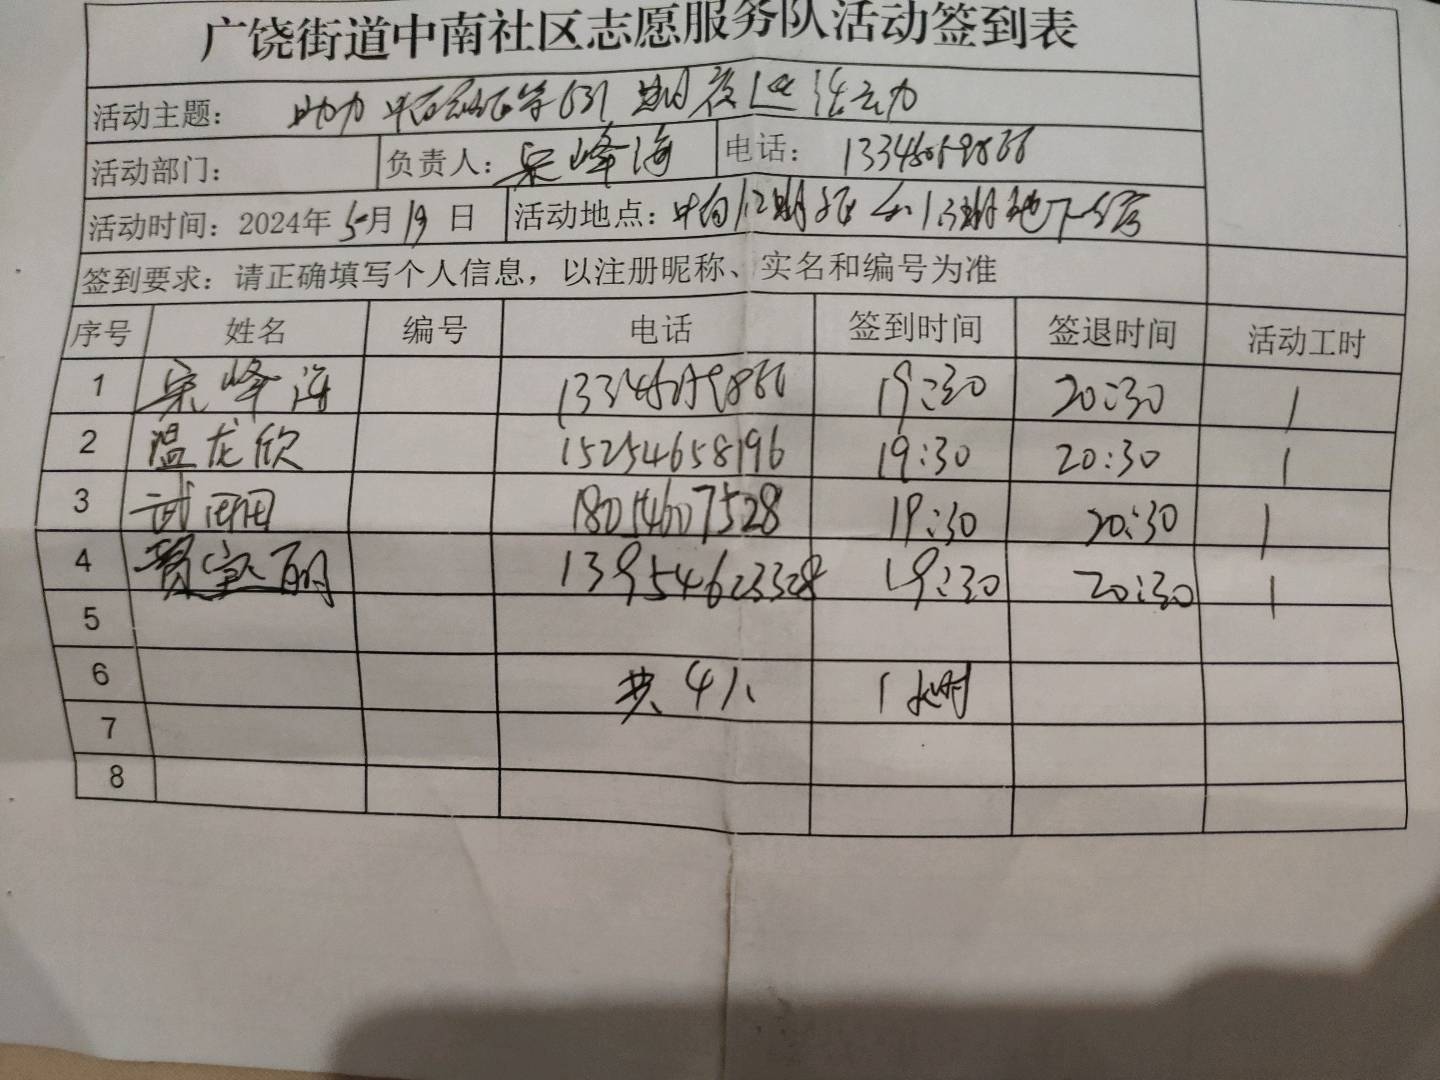 广饶街道中南社区志愿服务队活动签到表
活动主题： 助力
活动部门： 负责人：宋峰海 电话：
活动时间：2024年5月19日 活动地点：
签到要求：请正确填写个人信息，以注册昵称、实名和编号为准
序号 姓名 编号 电话 签到时间 签退时间 活动工时
1 宋峰海 19:30 20:30 1
2 温龙欣 15254658196 19:30 20:30 1
3 武 18054607528 19:30 20:30 1
4 贾宝丽 13954623328 19:30 20:30 1
5
6 共4人 1小时
7
8